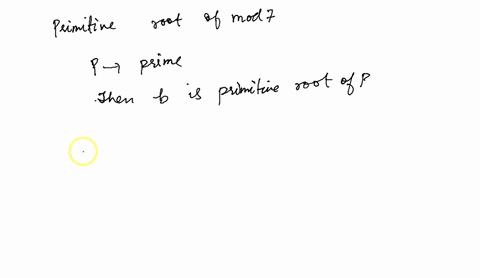 Primitive root of mod 7
P → prime
.Then b is primitive root of P